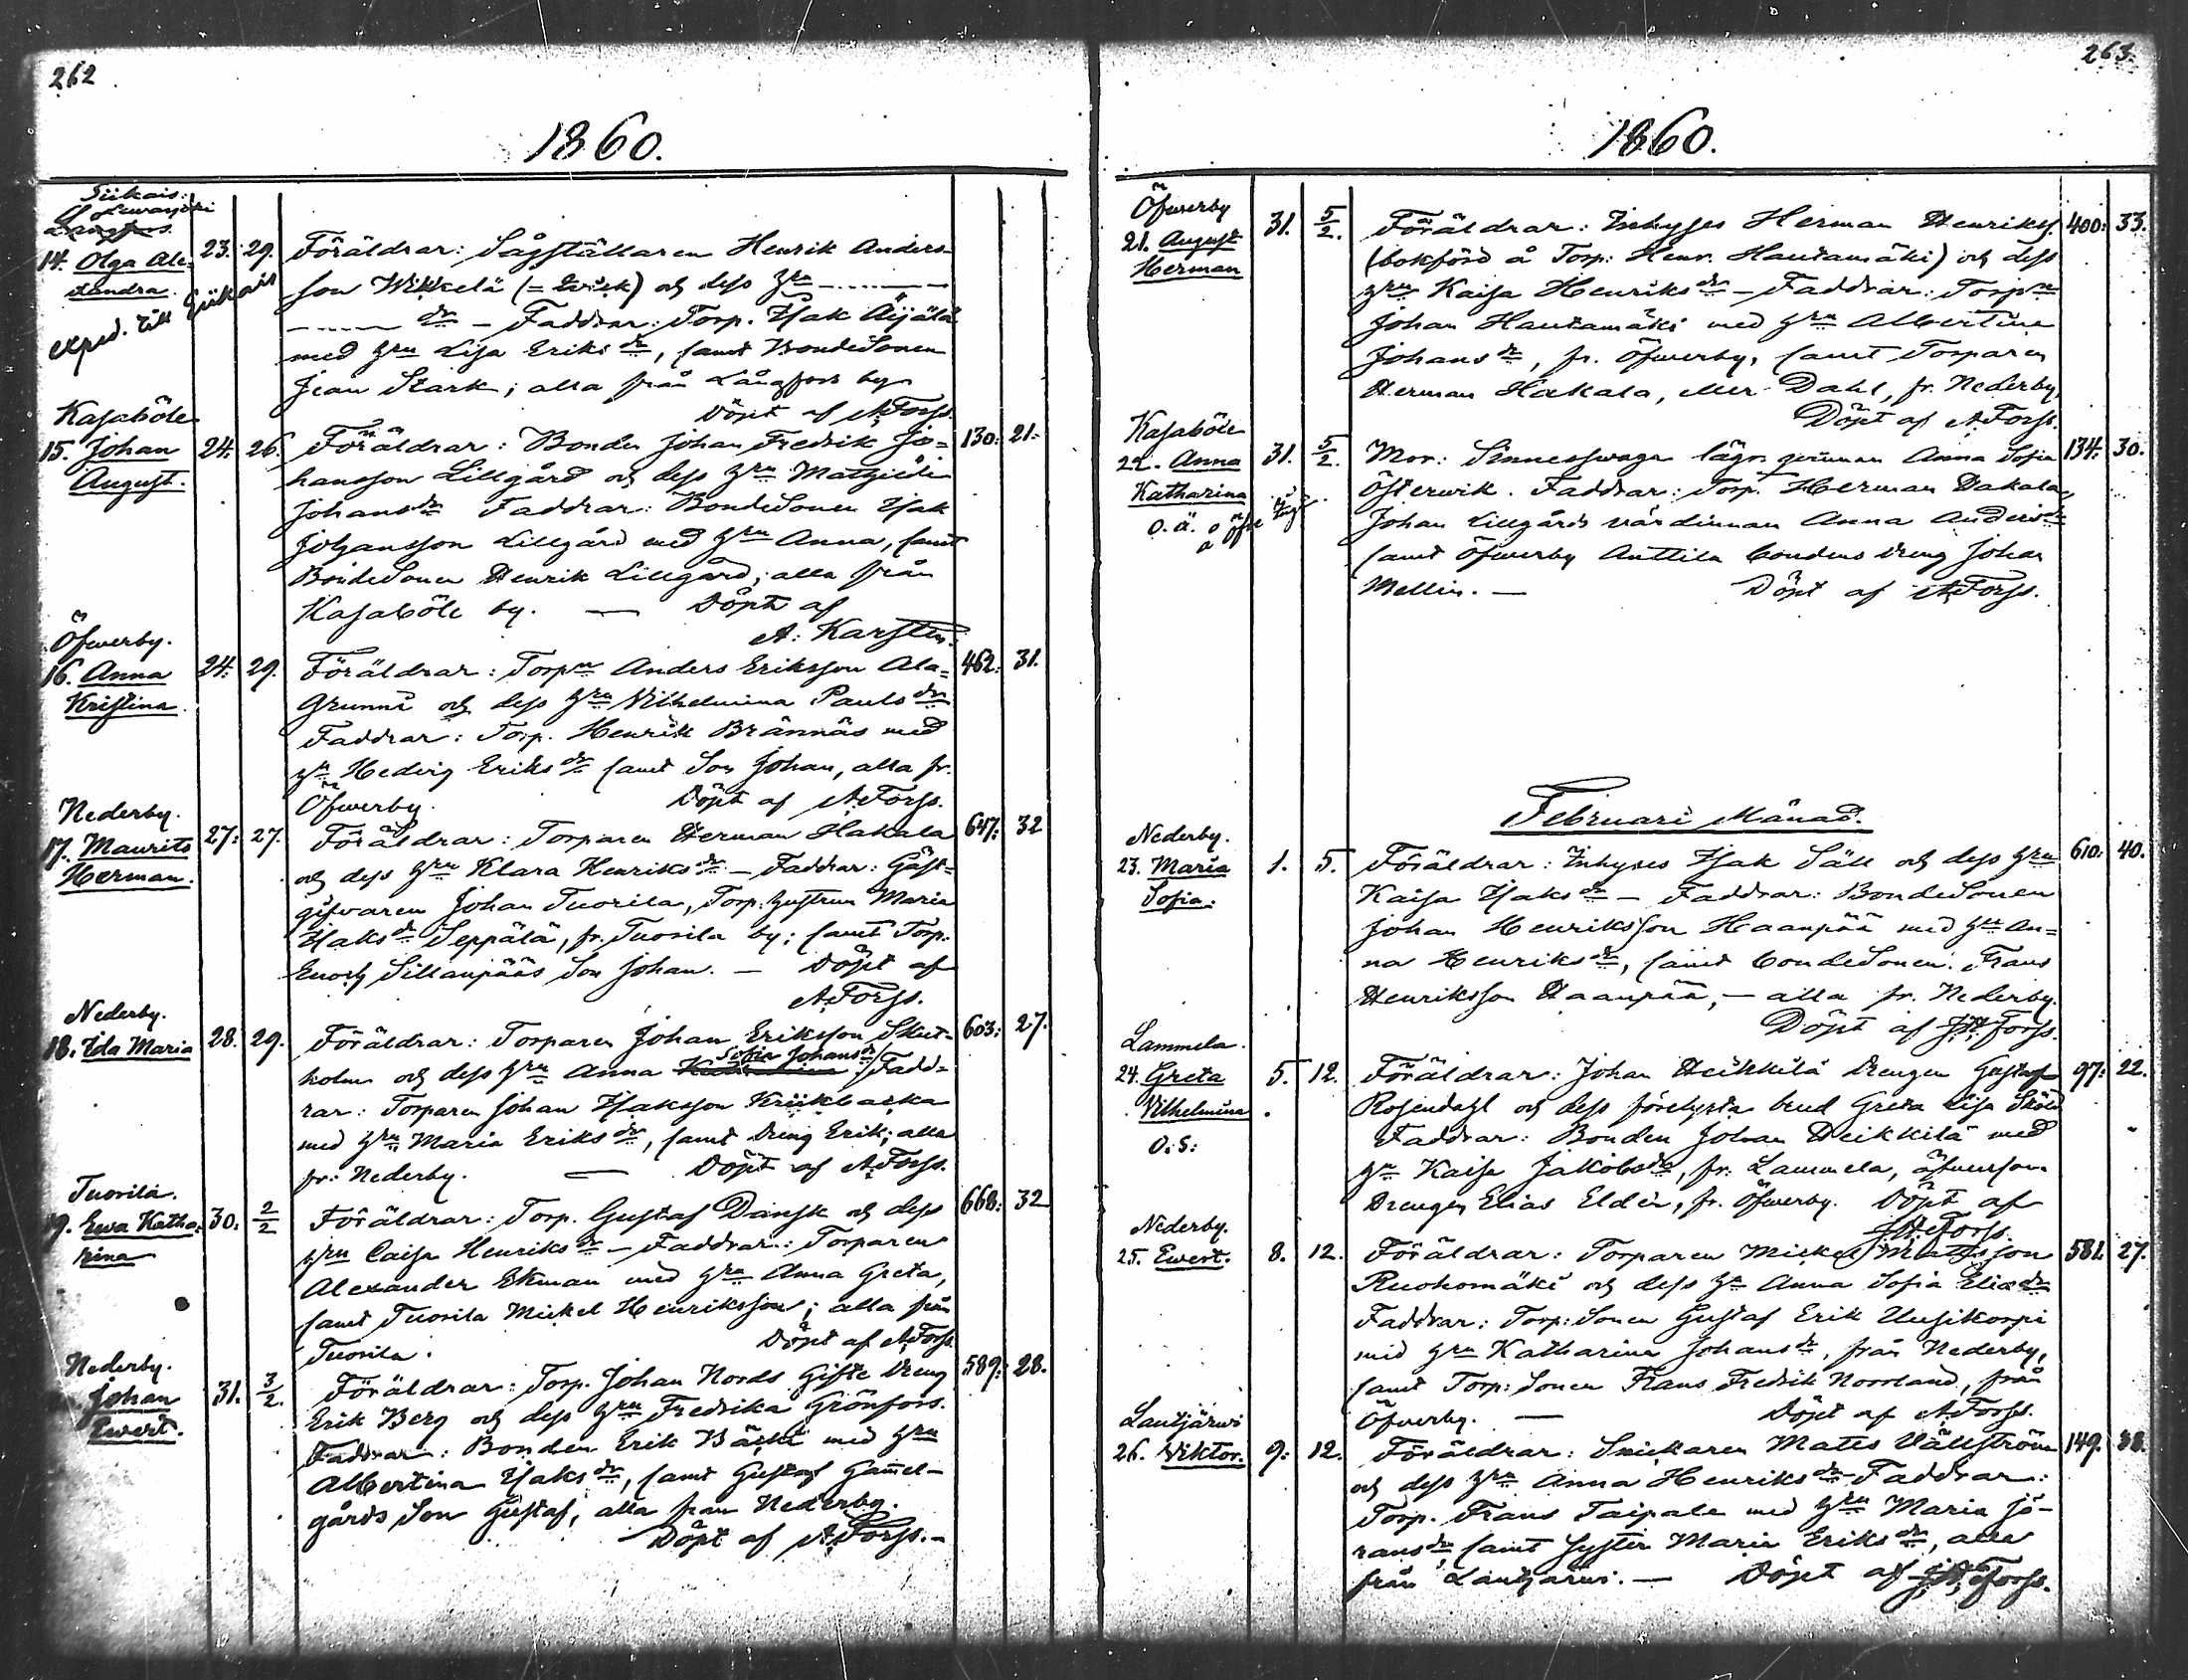 262
1860.
Siikais:
Leväsjoki
14. Olga Ale-
xandra.
exped. till Siikais
23. 29. Föräldrar: Sågställaren Henrik Anders-
son Wikkelä (= Wik) och dess hru ———
——— dr — Faddrar: Torp. Isak Äijälä
med hru Lisa Eriksdr, samt Bondesonen
Jean Stark; alla från Långfors by
Döpt af A Forss.
Kasaböle
15. Johan
August.
24. 26. Föräldrar: Bonden Johan Fredrik Jo= 130: 21.
hansson Lillgård och dess hru
Johansdr Faddrar: Bondesonen Isak
Johansson Lillgård med hru Anna, samt
Bondesonen Henrik Lillgård; alla från
Kasaböle by. — Döpt af
A. Karsten.
Öfwerby.
16. Anna
Kristina.
24. 29. Föräldrar: Torpn Anders Eriksson Ala= 462: 31.
Grunni och dess hru Vilhelmina Paulsdr
Faddrar: Torp. Henrik Brännäs med
hru Hedvig Eriksdr samt Son Johan, alla fr.
Öfwerby. Döpt af A. Forss.
Nederby.
17. Maurits
Herman.
27: 27. Föräldrar: Torparen Herman Hakala 647: 32
och dess hru Klara Henriksdr — Faddrar: Gäst-
gifvaren Johan Tuorila, Torp: hustrun Maria
Isaksdr Seppälä, fr. Tuorila by; samt Torp.
Enoch Sillanpääs Son Johan. — Döpt af
A. Forss.
Nederby.
18. Ida Maria
28. 29. Föräldrar: Torparen Johan Eriksson Skut- 603: 27.
Sofia Johansdr
holm och dess hru Anna Fadd=
rar: Torparen Johan Isaksson Kriikbacka
med hru Maria Eriksdr, samt Dreng Erik; alla
fr: Nederby. — Döpt af A. Forss.
Tuorila.
19. Ewa Katha-
rina
30. 2/2 Föräldrar: Torp. Gustaf Dansk och dess 668: 32
hru Caisa Henriksdr — Faddrar: Torparen
Alexander Ekman med hru Anna Greta,
samt Tuorila Mickel Henriksson; alla från
Tuorila. Döpt af A. Forss.
Nederby.
Johan
Ewert.
31. 3/2. Föräldrar: Torp. Johan Nords Gifte Dreng 589: 28.
Erik Berg och dess hru Fredrika Grönfors.
Faddrar: Bonden Erik Bäcki med hru
Albertina Isaksdr, samt Gustaf Gamel-
gårds Son Gustaf, alla från Nederby.
Döpt af A. Forss. —
263.
1860.
Öfwerby
21. August
Herman
31. 5/2. Föräldrar: Inhyses Herman Henrikss. 400: 33.
(bokförd å Torp: Henr. Hautamäki) och dess
hru Kaisa Henriksdr — Faddrar: Torpn
Johan Hautamäki med hru Albertina
Johansdr, fr. Öfwerby, samt Torparen
Herman Hakala, eller Dahl, fr. Nederby
Döpt af A. Forss.
Kasaböle
22. Anna
Katharina
o. ä.
31. 5/2. Mor: Sinnessvaga lägr. qvinnan Anna Sofia 134: 30.
Österwik. Faddrar: Torp. Herman Dakala,
Johan Lillgårds värdinnan Anna Andersdr
samt Öfwerby Anttila bondens dreng Johan
Mellin. — Döpt af A. Forss.
Februari Månad.
Nederby.
23. Maria
Sofia.
1. 5. Föräldrar: Inhyses Isak Säll och dess hru 610: 40.
Kaisa Isaksdr — Faddrar: Bondesonen
Johan Henriksson Haanpää med hru An=
na Henriksdr, samt bondesonen Frans
Henriksson Haanpää, — alla fr. Nederby.
Döpt af Forss.
Lammela.
24. Greta
Vilhelmina
O. S:
5. 12. Föräldrar: Johan Heikkilä Drengen Gustaf 97: 22.
Rosendahl och dess förelysta brud Greta Lisa Sköld
Faddrar: Bonden Johan Heikkilä med
hru Kaisa Jakobsdr, fr. Lammela, äfvensom
Drengen Elias Eldén, fr. Öfwerby. Döpt af
Forss.
Nederby.
25. Ewert.
8. 12. Föräldrar: Torparen Mickel Mattsson 581. 27.
Ruohomäki och dess hr Anna Sofia Eliædr
Faddrar: Torp: Sonen Gustaf Erik Uusikorpi
mid hru Katharina Johansdr, från Nederby,
samt Torp: Sonen Frans Fredrik Norrland, från
Öfwerby. — Döpt af A. Forss.
Lautjärwi
26. Viktor.
9. 12. Föräldrar: Snickaren Matts Vällström 149. 38.
och dess hru Anna Henriksdr — Faddrar:
Torp. Frans Taipale med hru Maria Jö-
ransdr, samt Syster Maria Eriksdr, alla
från Lautjärwi. — Döpt af Forss.